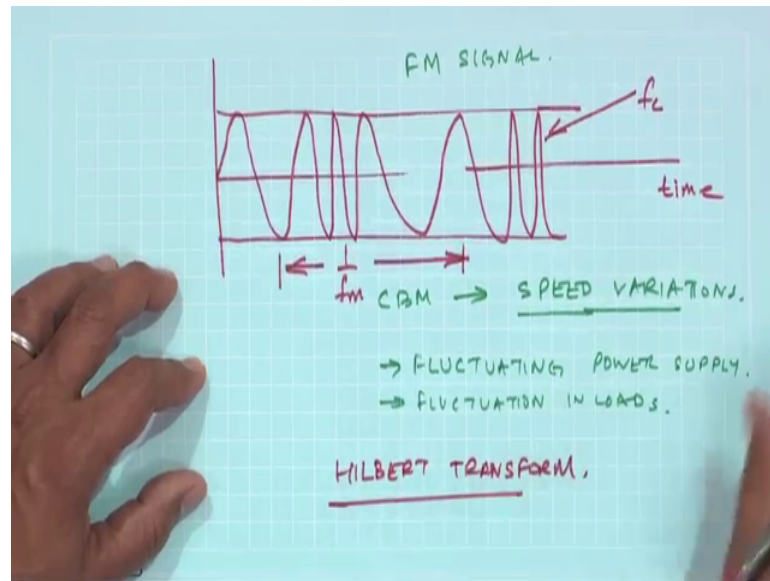 FM SIGNAL.
fc
time
1
fm
CBM → SPEED VARIATIONS.
→ FLUCTUATING POWER SUPPLY.
→ FLUCTUATION IN LOADS.
HILBERT TRANSFORM.